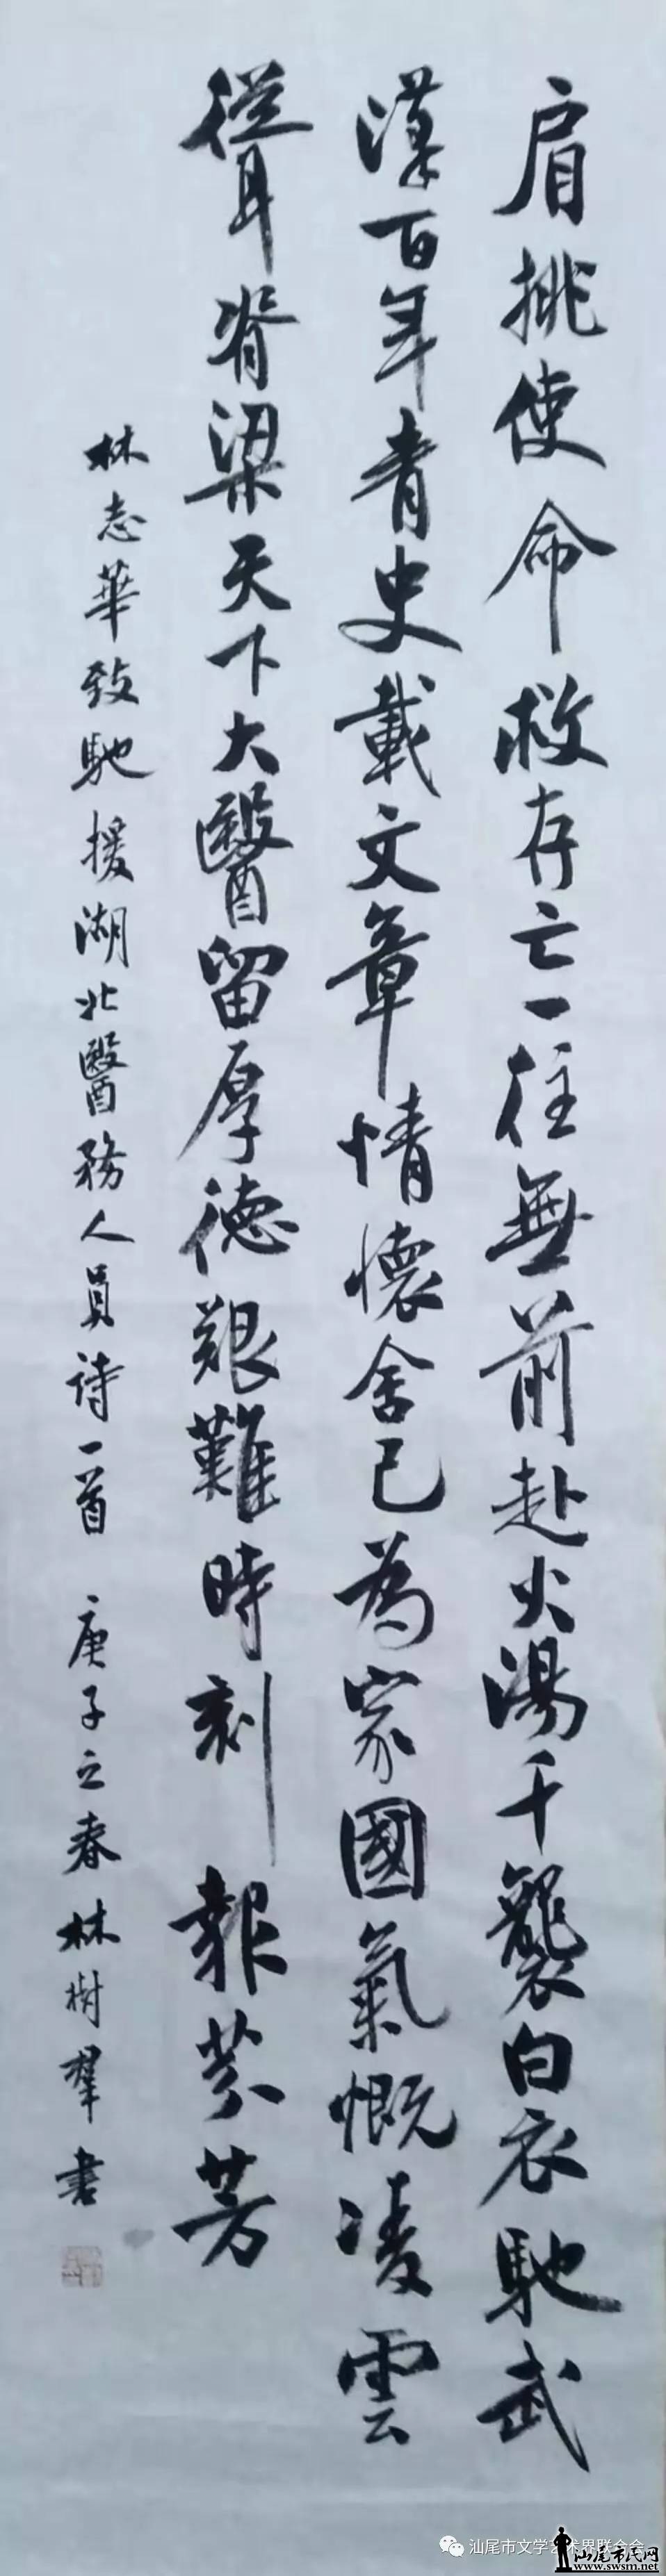 肩挑使命救存亡一往無前赴火湯千襲白衣馳武
漢百年青史載文章情懷舍己為家國氣慨凌雲
聳脊梁天下大醫留厚德艱難時刻報芬芳
林志華致馳援湖北醫務人員詩一首 庚子立春林樹群書
汕尾市文学艺术界联合会
汕尾市民网
www.swsm.net